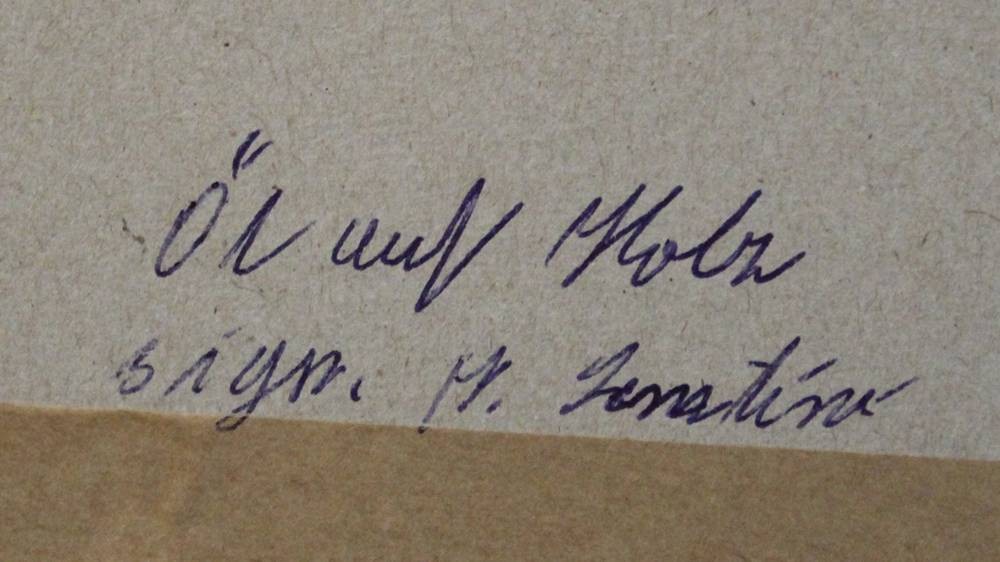 Öl auf Holz
sign. H.